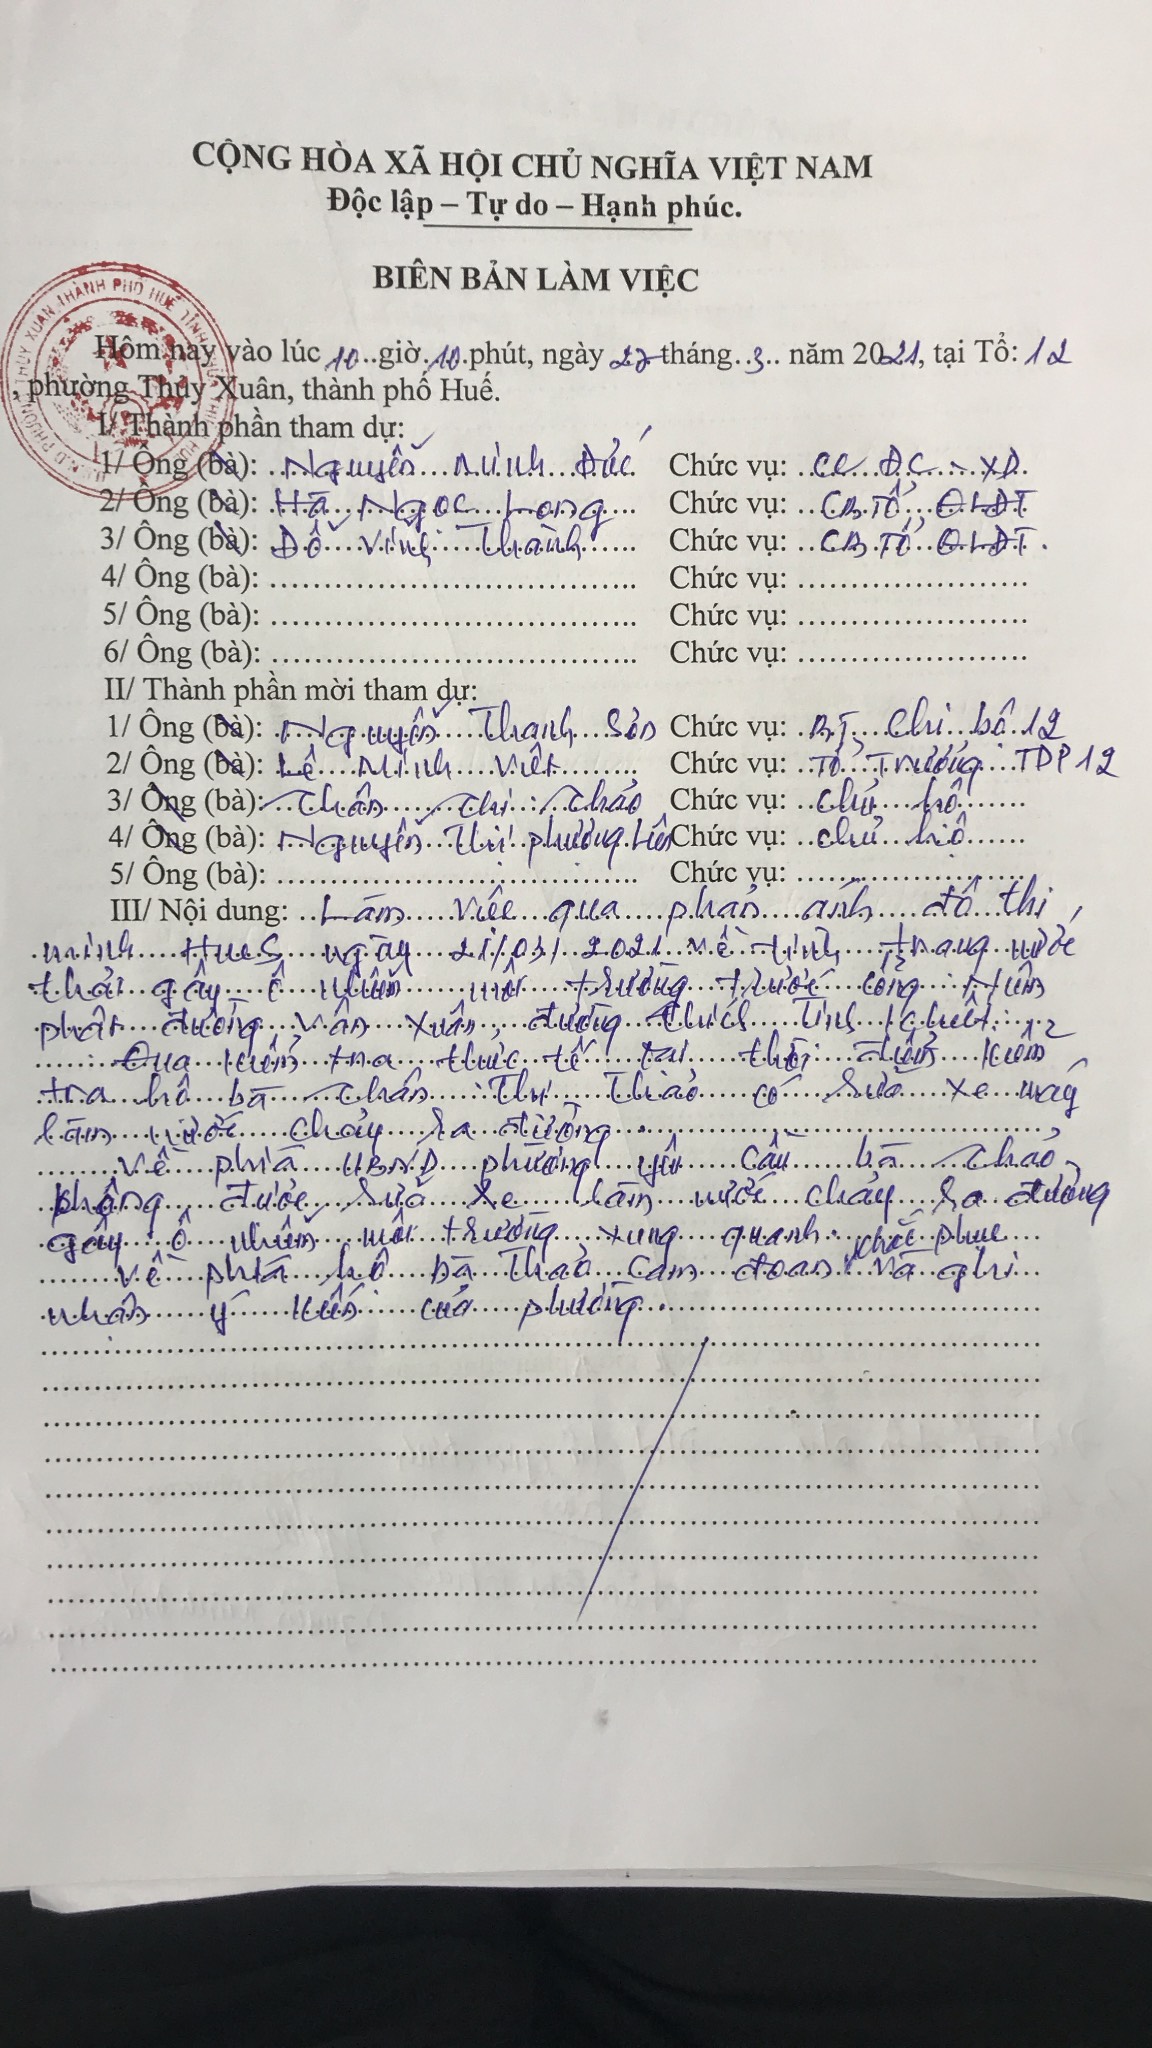 CỘNG HÒA XÃ HỘI CHỦ NGHĨA VIỆT NAM
Độc lập – Tự do – Hạnh phúc.
BIÊN BẢN LÀM VIỆC
Hôm nay vào lúc 10 giờ 10 phút, ngày 22 tháng 3 năm 2021, tại Tổ: 12
, phường Thủy Xuân, thành phố Huế.
I/ Thành phần tham dự:
1/ Ông (bà): Nguyễn Minh Đức Chức vụ: CC ĐC - XD
2/ Ông (bà): Hà Ngọc Long Chức vụ: CB Tổ QLĐT
3/ Ông (bà): Đỗ Vinh Thành Chức vụ: CB Tổ QLĐT.
4/ Ông (bà): Chức vụ:
5/ Ông (bà): Chức vụ:
6/ Ông (bà): Chức vụ:
II/ Thành phần mời tham dự:
1/ Ông (bà): Nguyễn Thanh Sơn Chức vụ: BT Chi bộ 12
2/ Ông (bà): Lê Minh Việt Chức vụ: Tổ Trưởng TDP 12
3/ Ông (bà): Thân Thị Thảo Chức vụ: Chủ hộ
4/ Ông (bà): Nguyễn Thị Phương Liên Chức vụ: chủ hộ
5/ Ông (bà): Chức vụ:
III/ Nội dung: Làm việc qua phản ánh đô thị
minh HueS ngày 21/03/2021 về tình trạng nước
thải gây ô nhiễm môi trường trước cổng
đường Vân Xuân, đường Thích Tịnh Khiết.
Qua kiểm tra thực tế tại thời điểm kiểm
tra hộ bà Thân Thị Thảo có sửa xe máy
làm nước chảy ra đường.
Về phía UBND phường yêu cầu bà Thảo
không được sửa xe làm nước chảy ra đường
gây ô nhiễm môi trường xung quanh.
Về phía hộ bà Thảo cam đoan khắc phục và ghi
nhận ý kiến của phường.